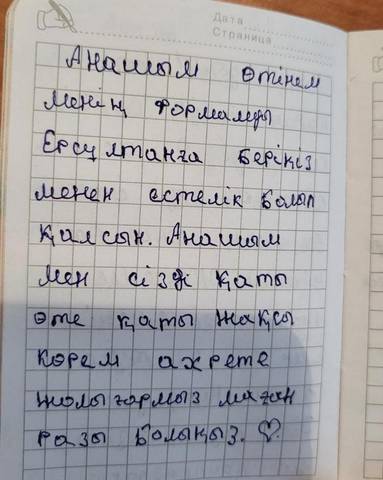 Дата
Страница
Анашым өтінем
менің формамды
Ерсұлтанға беріңіз
менен естелік болып
қалсын. Анашым
мен сізді қаты
өте қаты жақсы
көрем ахрете
жолығармыз маған
разы болыңыз.